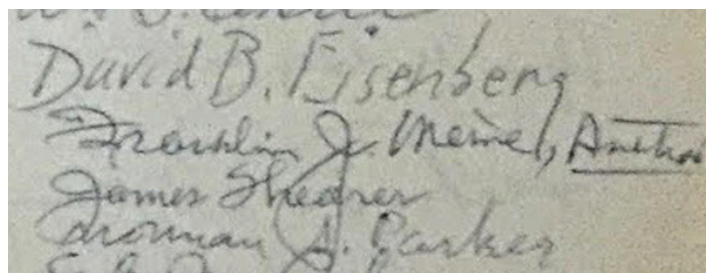 David B. Eisenberg
Franklin J. Meine,
James Shearer
Norman A. Parker